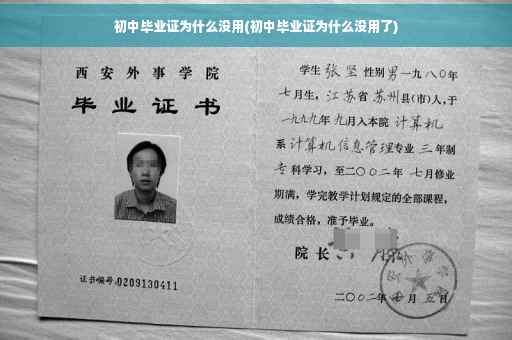 初中毕业证为什么没用(初中毕业证为什么没用了)
西安外事学院
毕业证书
证书编号:0209130411
学生 张坚 性别 男 一九八〇年
七月生，江苏省 苏州县(市)人，于
一九九九年 九月入本院 计算机
系 计算机信息管理专业 三 年制
专科学习，至二〇〇二年 七月修业
期满，学完教学计划规定的全部课程，
成绩合格，准予毕业。
院长
二〇〇二年 七月 五日